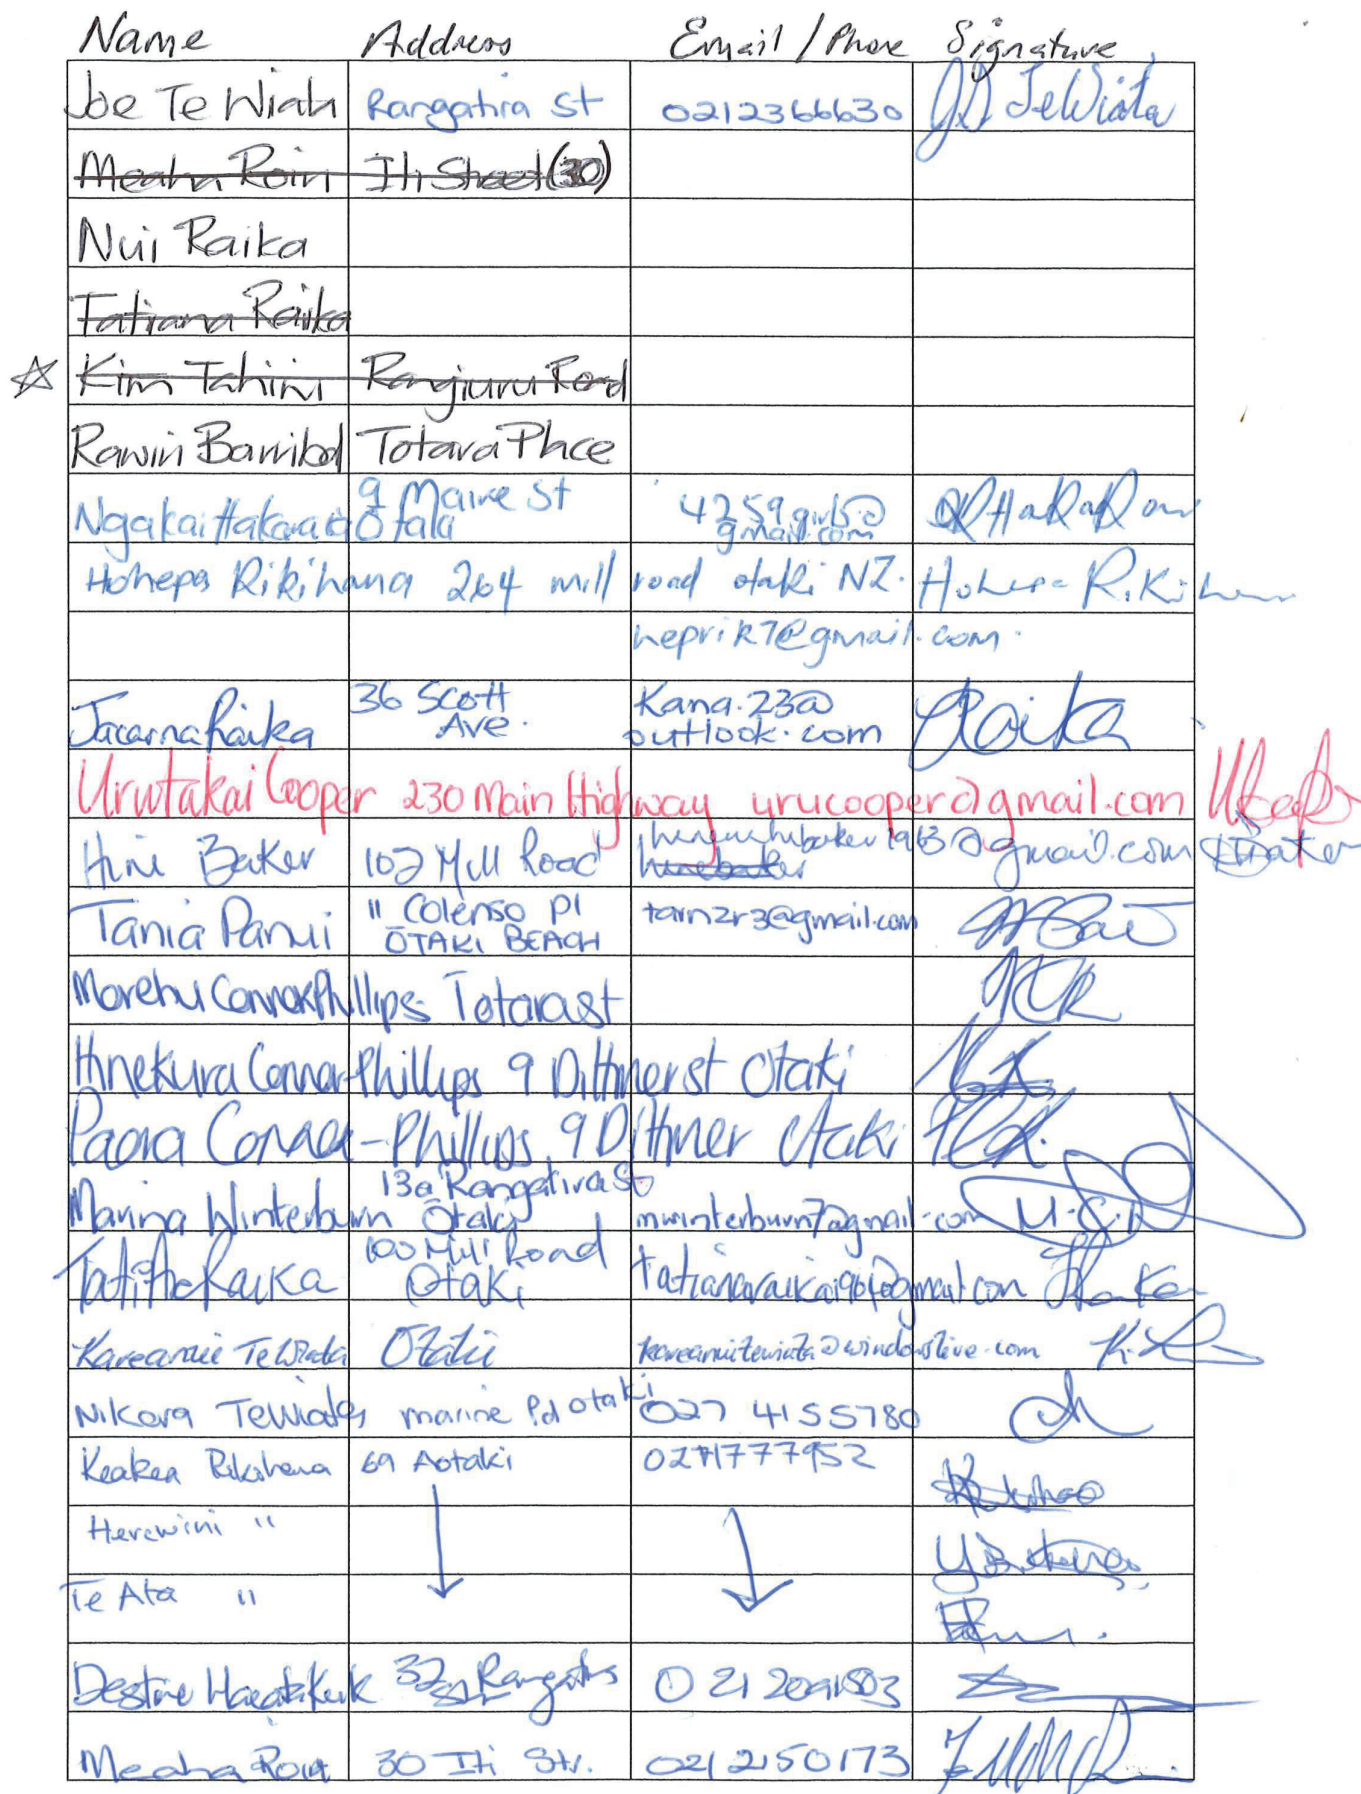 Name Address Email / Phone Signature
Joe Te Wiata Rangatira St 0212366630 JD TeWiata
Meaha Roiri Iti Street (30)
Nui Raika
Tatiana Raika
Kim Tahiri Rangiuru Road
Rawiri Barribal Totara Place
Ngakai Hakaraia 9 Maire St
Otaki 4259girls@
gmail.com
Hohepa Rikihana 264 mill road otaki NZ.
heprik7@gmail.com.
Jacarna Raika 36 Scott
Ave. Kana.23@
outlook.com Raika
Urutakai Cooper 230 Main Highway urucooper@gmail.com
Hini Baker 102 Mill Road @gmail.com Baker
Tania Panui 11 Colenso Pl
ŌTAKI BEACH tarn2r3@gmail.com
Morehu Connor Phillips Totara st
Hinekura Connor-Phillips 9 Dittmer st Otaki
Paora Connor-Phillips 9 Dittmer Otaki
Marina Winterburn 13a Rangatira St
Ōtaki mwinterburn7@gmail.com
Raika 100 Mill Road
Otaki tatianaraika1961@gmail.com
Kareanui Te Wiata Otaki kareanuitewiata@windowslive.com
Nikora TeWiata marine Pd otaki 027 4155780
Keakea Rikihana 69 Aotaki
Herewini "
Te Ata "
Destine 32 Rangatira
Meaha Roiri 30 Iti Str. 021 2150173